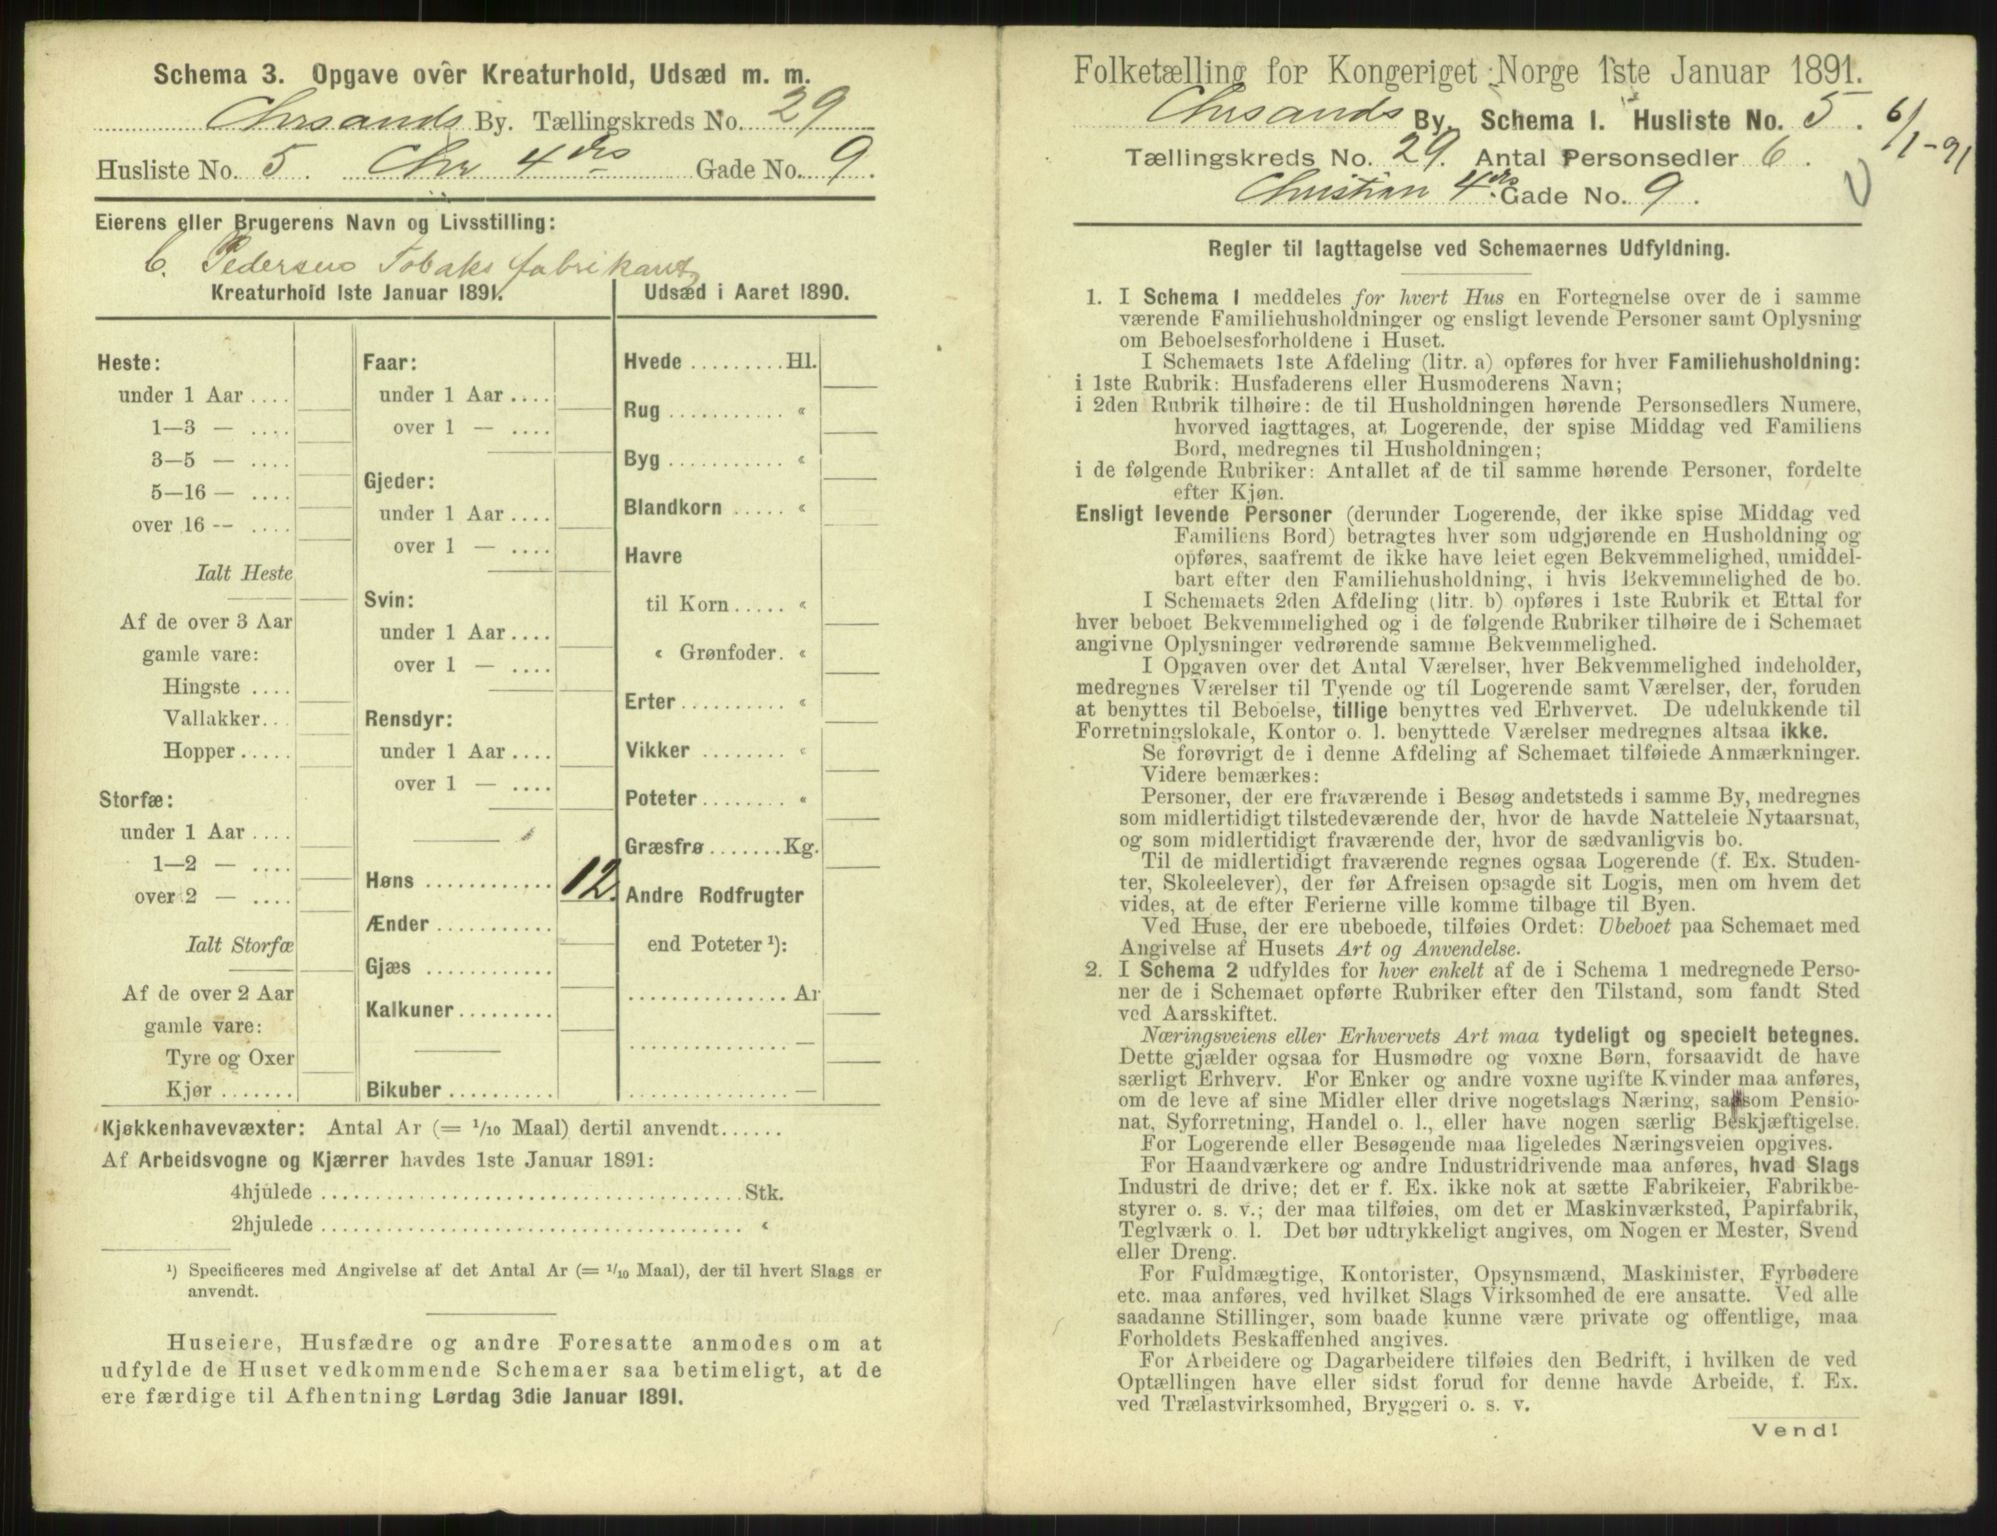 Schema 3. Opgave over Kreaturhold, Udsæd m. m.
Chrsands By. Tællingskreds No. 29
Husliste No. 5. Chr 4des Gade No. 9.
Eierens eller Brugerens Navn og Livsstilling:
C. Pedersen Tobaksfabrikant
Kreaturhold 1ste Januar 1891.
Heste:
under 1 Aar ....
1—3 — ....
3—5 — ....
5—16 — ....
over 16 — ....
Ialt Heste
Af de over 3 Aar
gamle vare:
Hingste ....
Vallakker...
Hopper.....
Storfæ:
under 1 Aar ....
1—2 — ....
over 2 — ....
Ialt Storfæ
Af de over 2 Aar
gamle vare:
Tyre og Oxer
Kjør .......
Faar:
under 1 Aar ....
over 1 — ....
Gjeder:
under 1 Aar ....
over 1 — ....
Svin:
under 1 Aar ....
over 1 — ....
Rensdyr:
under 1 Aar ....
over 1 — ....
Høns ............ 12.
Ænder ...........
Gjæs ............
Kalkuner.........
Bikuber..........
Udsæd i Aaret 1890.
Hvede .........Hl.
Rug ........... «
Byg ........... «
Blandkorn ..... «
Havre
til Korn..... «
« Grønfoder. «
Erter.......... «
Vikker ........ «
Poteter........ «
Græsfrø.......Kg.
Andre Rodfrugter
end Poteter ¹):
............... Ar
............... —
............... —
Kjøkkenhavevæxter: Antal Ar (= 1/10 Maal) dertil anvendt......
Af Arbeidsvogne og Kjærrer havdes 1ste Januar 1891:
4hjulede ........................................Stk.
2hjulede ........................................ «
¹) Specificeres med Angivelse af det Antal Ar (= 1/10 Maal), der til hvert Slags er
anvendt.
Huseiere, Husfædre og andre Foresatte anmodes om at
udfylde de Huset vedkommende Schemaer saa betimeligt, at de
ere færdige til Afhentning Lørdag 3die Januar 1891.
Folketælling for Kongeriget Norge 1ste Januar 1891.
Chrsands By. Schema 1. Husliste No. 5.
6/1-91
Tællingskreds No. 29. Antal Personsedler 6.
Christian 4des Gade No. 9.
Regler til Iagttagelse ved Schemaernes Udfyldning.
1. I Schema 1 meddeles for hvert Hus en Fortegnelse over de i samme
værende Familiehusholdninger og ensligt levende Personer samt Oplysning
om Beboelsesforholdene i Huset.
I Schemaets 1ste Afdeling (litr. a) opføres for hver Familiehusholdning:
i 1ste Rubrik: Husfaderens eller Husmoderens Navn;
i 2den Rubrik tilhøire: de til Husholdningen hørende Personsedlers Numere,
hvorved iagttages, at Logerende, der spise Middag ved Familiens
Bord, medregnes til Husholdningen;
i de følgende Rubriker: Antallet af de til samme hørende Personer, fordelte
efter Kjøn.
Ensligt levende Personer (derunder Logerende, der ikke spise Middag ved
Familiens Bord) betragtes hver som udgjørende en Husholdning og
opføres, saafremt de ikke have leiet egen Bekvemmelighed, umiddel-
bart efter den Familiehusholdning, i hvis Bekvemmelighed de bo.
I Schemaets 2den Afdeling (litr. b) opføres i 1ste Rubrik et Ettal for
hver beboet Bekvemmelighed og i de følgende Rubriker tilhøire de i Schemaet
angivne Oplysninger vedrørende samme Bekvemmelighed.
I Opgaven over det Antal Værelser, hver Bekvemmelighed indeholder,
medregnes Værelser til Tyende og til Logerende samt Værelser, der, foruden
at benyttes til Beboelse, tillige benyttes ved Erhvervet. De udelukkende til
Forretningslokale, Kontor o. l. benyttede Værelser medregnes altsaa ikke.
Se forøvrigt de i denne Afdeling af Schemaet tilføiede Anmærkninger.
Videre bemærkes:
Personer, der ere fraværende i Besøg andetsteds i samme By, medregnes
som midlertidigt tilstedeværende der, hvor de havde Natteleie Nytaarsnat,
og som midlertidigt fraværende der, hvor de sædvanligvis bo.
Til de midlertidigt fraværende regnes ogsaa Logerende (f. Ex. Studen-
ter, Skoleelever), der før Afreisen opsagde sit Logis, men om hvem det
vides, at de efter Ferierne ville komme tilbage til Byen.
Ved Huse, der ere ubeboede, tilføies Ordet: Ubeboet paa Schemaet med
Angivelse af Husets Art og Anvendelse.
2. I Schema 2 udfyldes for hver enkelt af de i Schema 1 medregnede Perso-
ner de i Schemaet opførte Rubriker efter den Tilstand, som fandt Sted
ved Aarsskiftet.
Næringsveiens eller Erhvervets Art maa tydeligt og specielt betegnes.
Dette gjælder ogsaa for Husmødre og voxne Børn, forsaavidt de have
særligt Erhverv. For Enker og andre voxne ugifte Kvinder maa anføres,
om de leve af sine Midler eller drive nogetslags Næring, saasom Pensio-
nat, Syforretning, Handel o. l., eller have nogen særlig Beskjæftigelse.
For Logerende eller Besøgende maa ligeledes Næringsveien opgives.
For Haandværkere og andre Industridrivende maa anføres, hvad Slags
Industri de drive; det er f. Ex. ikke nok at sætte Fabrikeier, Fabrikbe-
styrer o. s. v.; der maa tilføies, om det er Maskinværksted, Papirfabrik,
Teglværk o. l. Det bør udtrykkeligt angives, om Nogen er Mester, Svend
eller Dreng.
For Fuldmægtige, Kontorister, Opsynsmænd, Maskinister, Fyrbødere
etc. maa anføres, ved hvilket Slags Virksomhed de ere ansatte. Ved alle
saadanne Stillinger, som baade kunne være private og offentlige, maa
Forholdets Beskaffenhed angives.
For Arbeidere og Dagarbeidere tilføies den Bedrift, i hvilken de ved
Optællingen have eller sidst forud for denne havde Arbeide, f. Ex.
ved Trælastvirksomhed, Bryggeri o. s. v.
Vend!